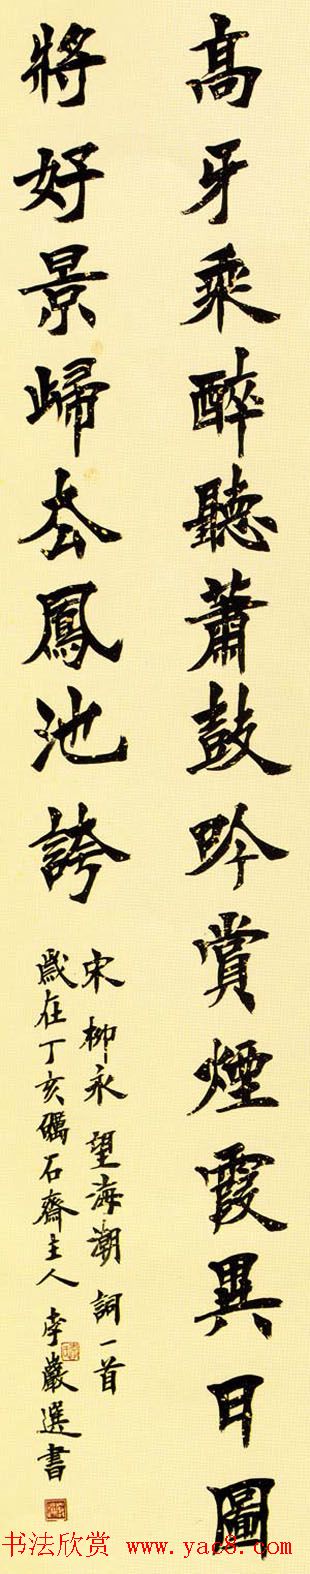 高牙乘醉聽蕭鼓吟賞煙霞異日圖
將好景歸去鳳池誇
宋柳永望海潮詞一首
歲在丁亥礪石齋主人李巖選書
书法欣赏 www.yac8.com